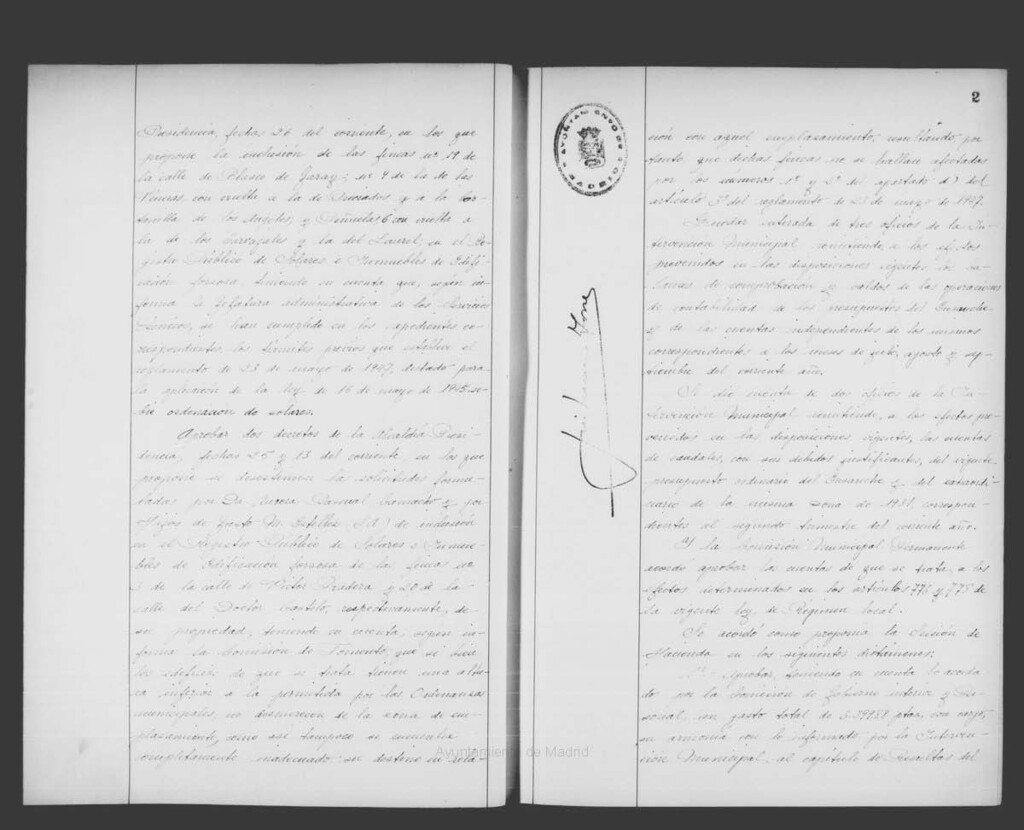 Presidencia, fechas 26 del corriente, en los que
propone la inclusión de las fincas nº 19 de
la calle de Blasco de Garay; nº 4 de la de las
Veneras, con vuelta a la de Preciados y a la Cos-
tanilla de los Angeles, y Peñuelas 6 con vuelta a
la de los Carvajales y la del Laurel, en el Re-
gistro Público de Solares e Inmuebles de Edifi-
cación forzosa, teniendo en cuenta que, según in-
forma la Jefatura administrativa de los Servicios
técnicos, se han cumplido en los expedientes co-
rrespondientes, los trámites previos que establece el
reglamento de 23 de mayo de 1947, dictado para
la aplicación de la ley de 15 de mayo de 1945 so-
bre ordenación de solares.
Aprobar dos decretos de la Alcaldía Presi-
dencia, fechas 25 y 13 del corriente, en los que
propone se desestimen las solicitudes formu-
ladas por Dª Pascual y por
Hijos de (S.A.) de inclusión
en el Registro Público de Solares e Inmue-
bles de Edificación forzosa de las fincas nº
3 de la calle de Víctor Pradera y 20 de la
calle del Doctor Castelo, respectivamente, de
su propiedad, teniendo en cuenta, según in-
forma la Comisión de Fomento, que si bien
los edificios de que se trata tienen una altu-
ra inferior a la permitida por las Ordenanzas
municipales, no desmerecen de la zona de em-
plazamiento, como así tampoco se encuentra
completamente inadecuado su destino en rela-
2
AYUNTAMIENTO DE MADRID
ción con aquel emplazamiento; resultando, por
tanto, que dichas fincas no se hallan afectadas
por los números 1º y 2º del apartado d) del
artículo 5º del reglamento de 23 de mayo de 1947.
Quedar enterada de tres oficios de la In-
tervención Municipal remitiendo, a los efectos
prevenidos en las disposiciones vigentes, los ba-
lances de comprobación y saldos de las operaciones
de contabilidad de los presupuestos del Ensanche
y de las cuentas independientes de los mismos
correspondientes a los meses de julio, agosto y sep-
tiembre del corriente año.
Se dió cuenta de dos oficios de la In-
tervención Municipal remitiendo, a los efectos pre-
venidos en las disposiciones vigentes, las cuentas
de caudales, con sus debidos justificantes, del vigente
presupuesto ordinario del Ensanche y del extraordi-
nario de la misma zona de 1931, correspon-
dientes al segundo trimestre del corriente año.
Y la Comisión Municipal Permanente
acordó aprobar las cuentas de que se trata, a los
efectos determinados en los artículos 776 y 775 de
la vigente ley de Régimen local.
Se acordó como proponía la Sección de
Hacienda en los siguientes dictámenes:
1º Aprobar, teniendo en cuenta lo acorda-
do por la Comisión de Gobierno interior y Per-
sonal, un gasto total de ptas., con cargo,
en armonía con lo informado por la Interven-
ción Municipal, al capítulo de Resultas del
Ayuntamiento de Madrid